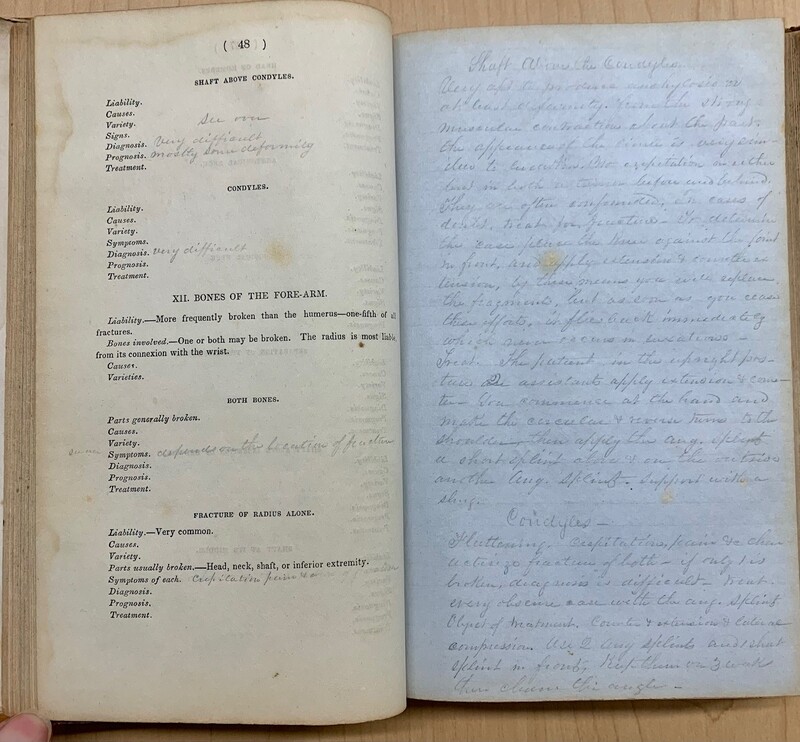 ( 48 )
SHAFT ABOVE CONDYLES.
Liability.
Causes.
Variety. See over
Signs.
Diagnosis. Very difficult
Prognosis. mostly some deformity
Treatment.
CONDYLES.
Liability.
Causes.
Variety.
Symptoms.
Diagnosis. very difficult
Prognosis.
Treatment.
XII. BONES OF THE FORE-ARM.
Liability.—More frequently broken than the humerus—one-fifth of all
fractures.
Bones involved.—One or both may be broken. The radius is most liable,
from its connexion with the wrist.
Causes.
Varieties.
BOTH BONES.
Parts generally broken.
Causes.
Variety.
Symptoms. depends on the location of fracture
Diagnosis.
Prognosis.
Treatment.
FRACTURE OF RADIUS ALONE.
Liability.—Very common.
Causes.
Variety.
Parts usually broken.—Head, neck, shaft, or inferior extremity.
Symptoms of each. Crepitation pain &c
Diagnosis.
Prognosis.
Treatment.
Shaft Above the Condyles.
Very apt to produce anchylosis or
at least deformity. strong
muscular contractions about the part.
the appearance of the is very sim-
ilar to luxation. No crepitation in either
but in both a before and behind.
They are often confounded, in cases of
doubt, treat for fracture - To determine
the case place the knee against the joint
in front, and apply extension & counterex
tension, by these means you will replace
the fragments, but as soon as you cease
these efforts, it flies back immediately
which never occurs in luxations -
Treat. The patient in the upright pos-
ture assistants apply extension & coun-
ter- You commence at the hand and
make the circular & reverse turns to the
shoulder - then apply the ang. splint
a short splint above & on the outside
another ang. splint. Support with a
sling.
Condyles -
Flattening crepitation, pain &c char
acterize fracture of both - if only 1 is
broken, diagnosis is difficult - treat
every obscure case with the ang. splint
Object of treatment. Counter & extension & lateral
compression. Use 2 ang splints and short
splint in front. Keep them on 3 weeks
then change the angle -